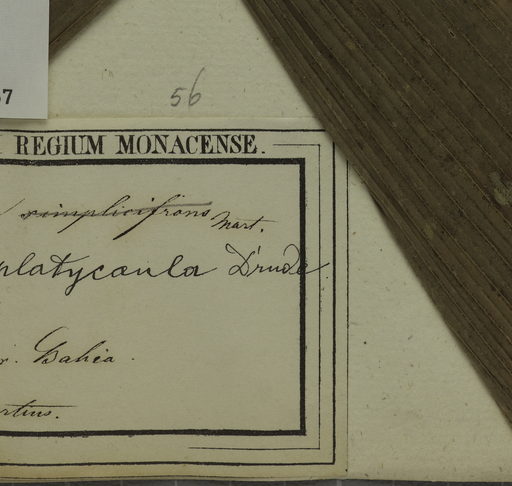 57
56
REGIUM MONACENSE.
simplicifrons Mart.
platycaula Drude
r. Bahia.
rtius.